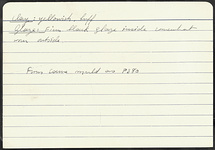 Clay: yellowish-buff
Glaze: Fine black glaze inside somewhat
over outside
From same mould as P390